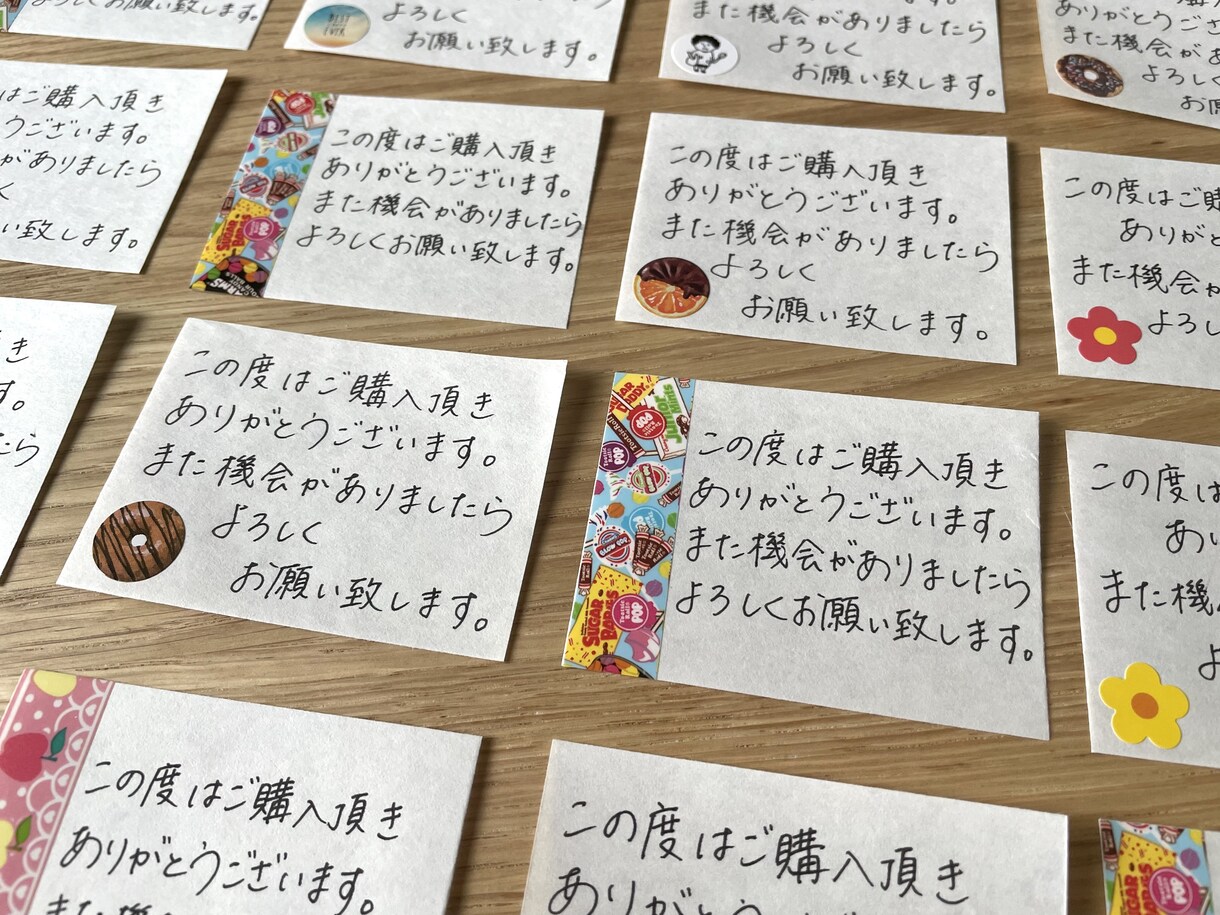 よろしくお願い致します。
BEST
EVER
よろしく
お願い致します。
また機会がありましたら
よろしく
お願い致します。
ありがとうござ
また機会があ
よろし
お
はご購入頂き
うございます。
がありましたら
く
い致します。
この度はご購入頂き
ありがとうございます。
また機会がありましたら
よろしくお願い致します。
SUGAR
BABIES
POP
この度はご購入頂き
ありがとうございます。
また機会がありましたら
よろしく
お願い致します。
この度はご購
ありがと
また機会が
よろし
き
す。
たら
この度はご購入頂き
ありがとうございます。
また機会がありましたら
よろしく
お願い致します。
SUGAR
DADDY
JUNIOR
MINTS
Tootsie Roll
POP
BLOW POP
SUGAR
BABIES
Tootsie
Roll
POP
この度はご購入頂き
ありがとうございます。
また機会がありましたら
よろしくお願い致します。
この度は
あり
また機
よ
この度はご購入頂き
ありがとうございます。
また機
この度はご購入頂き
ありがとうございます
SUGAR
POP